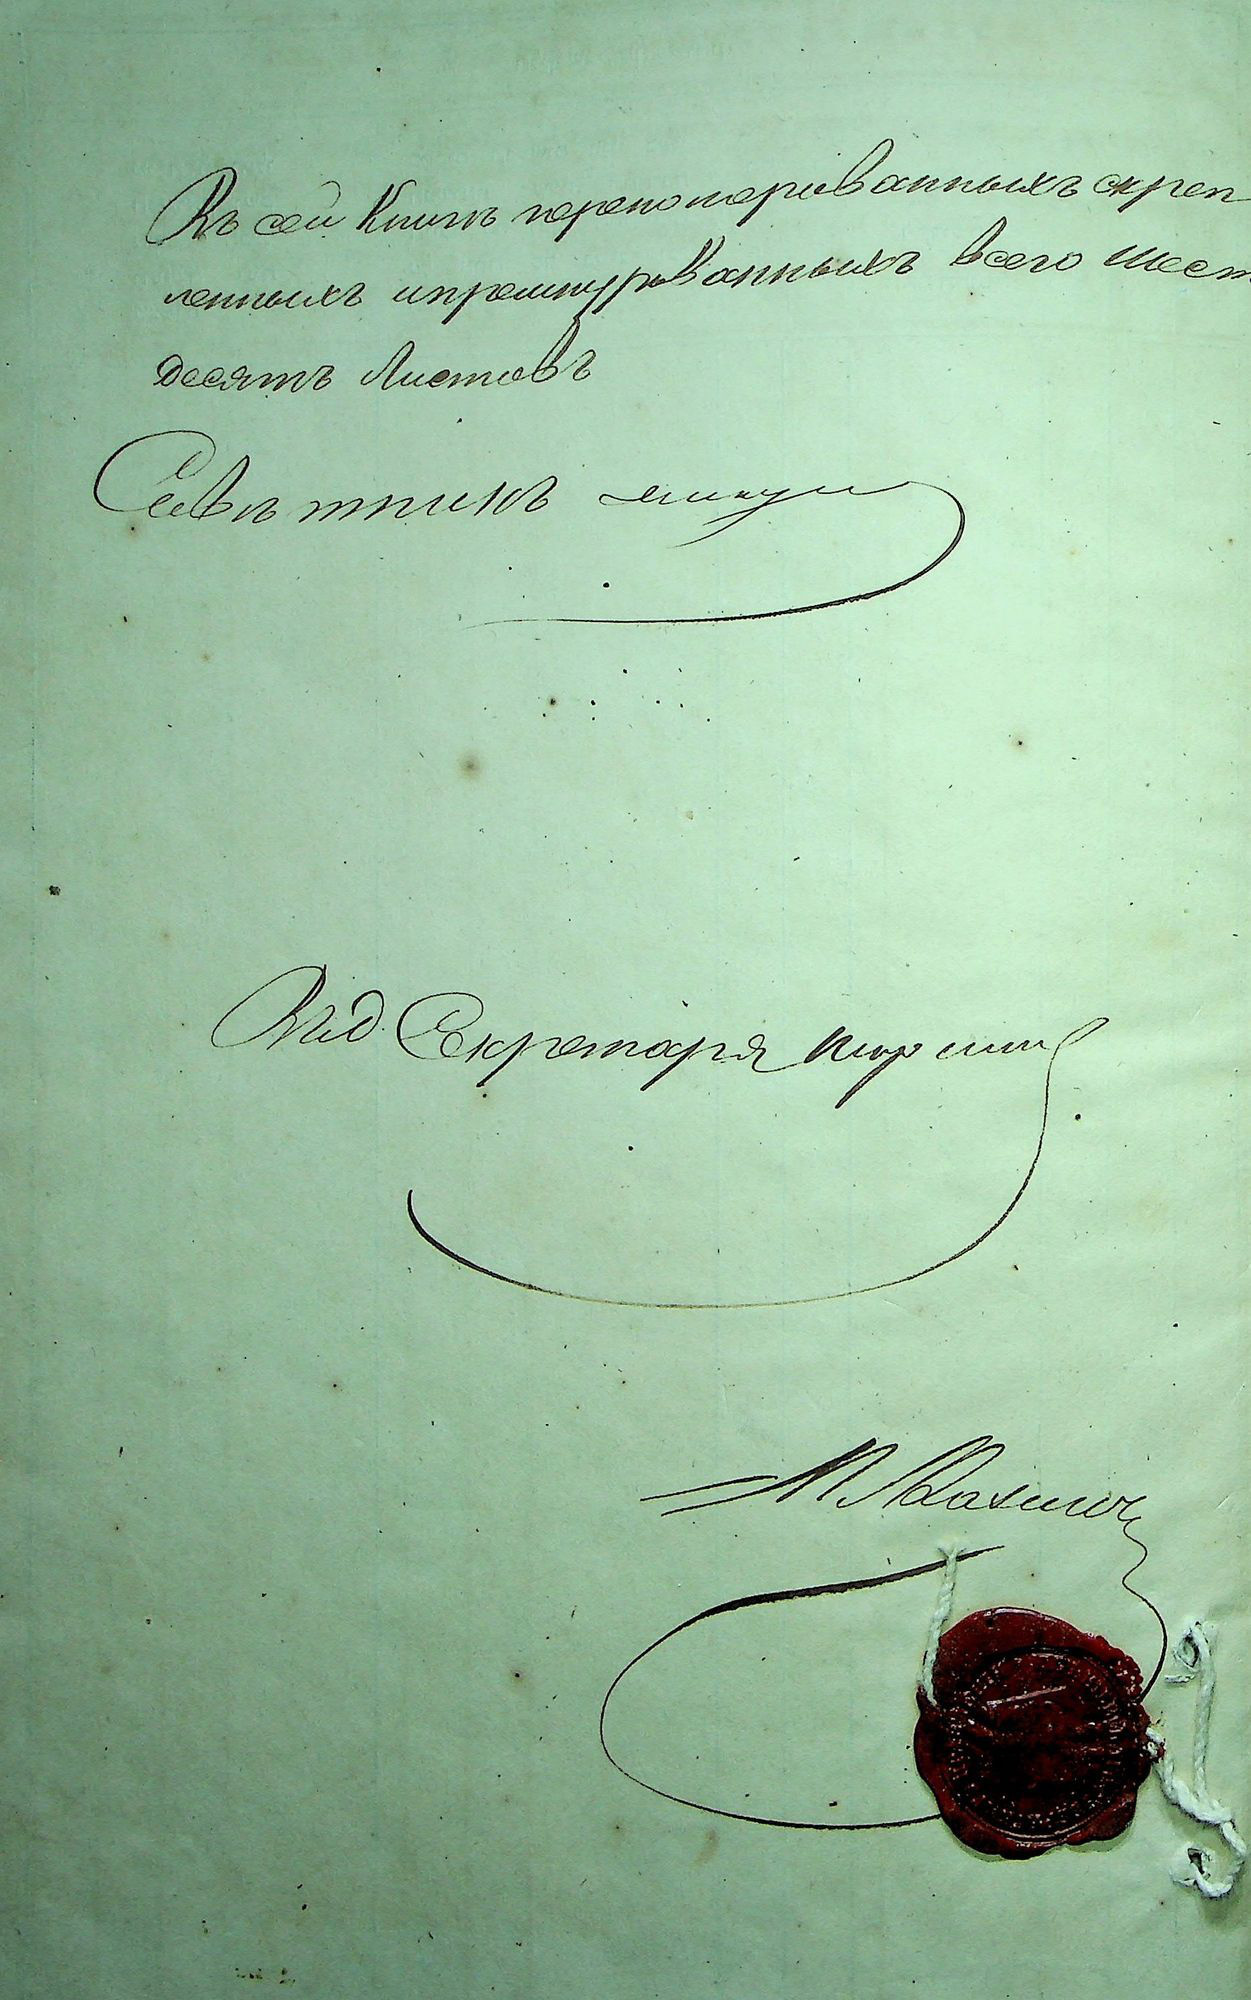 Въ сей Книгѣ переномерованныхъ скреп
ленныхъ ипрошнурованныхъ всего шест
десятъ Листовъ
Совѣтникъ
Вид. Секретаря